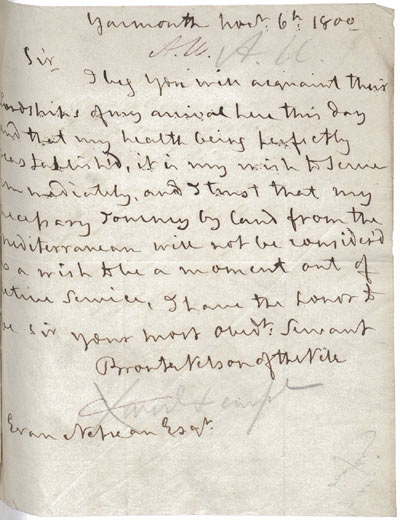 Yarmouth Novr. 6th. 1800
A.U. A.U.
Sir
I beg you will acquaint their
Lordships of my arrival here this day
and that my health being perfectly
reestablished, it is my wish to serve
immediately, and I trust that my
necessary Journey by land from the
Mediterranean will not be consider'd
as a wish to be a moment out of
active service, I have the honor to
be Sir your most Obedt. Servant
Bronte Nelson of the Nile
Evan Nepean Esqr.